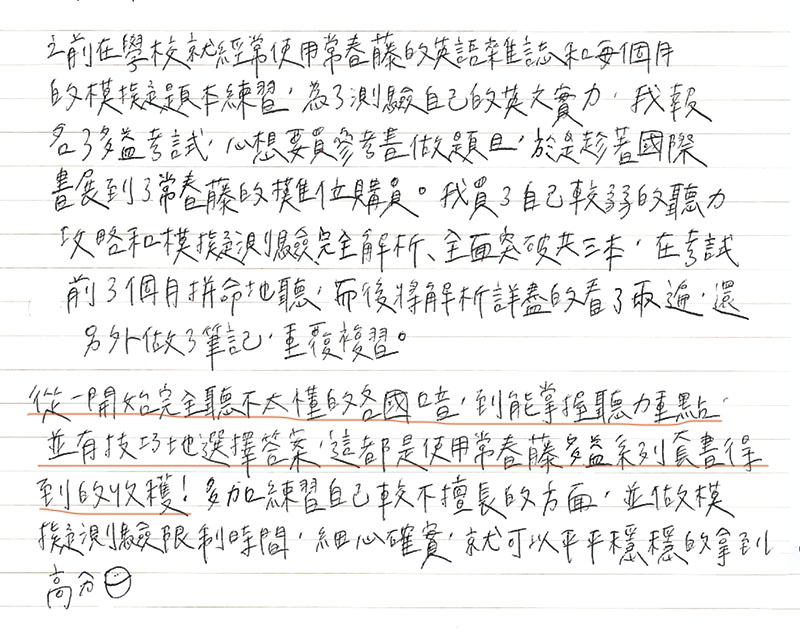 之前在學校就經常使用常春藤的英語雜誌和每個月
的模擬題本練習，為了測驗自己的英文實力，我報
名了多益考試，心想要買參考書做題目，於是趁著國際
書展到了常春藤的攤位購買。我買了自己較弱的聽力
攻略和模擬測驗完全解析、全面突破共三本，在考試
前3個月拼命地聽，而後將解析詳盡的看了兩遍，還
另外做了筆記，重覆複習。
從一開始完全聽不太懂的各國口音，到能掌握聽力重點，
並有技巧地選擇答案，這都是使用常春藤多益系列套書得
到的收穫！多加練習自己較不擅長的方面，並做模
擬測驗限制時間，細心確實，就可以平平穩穩的拿到
高分